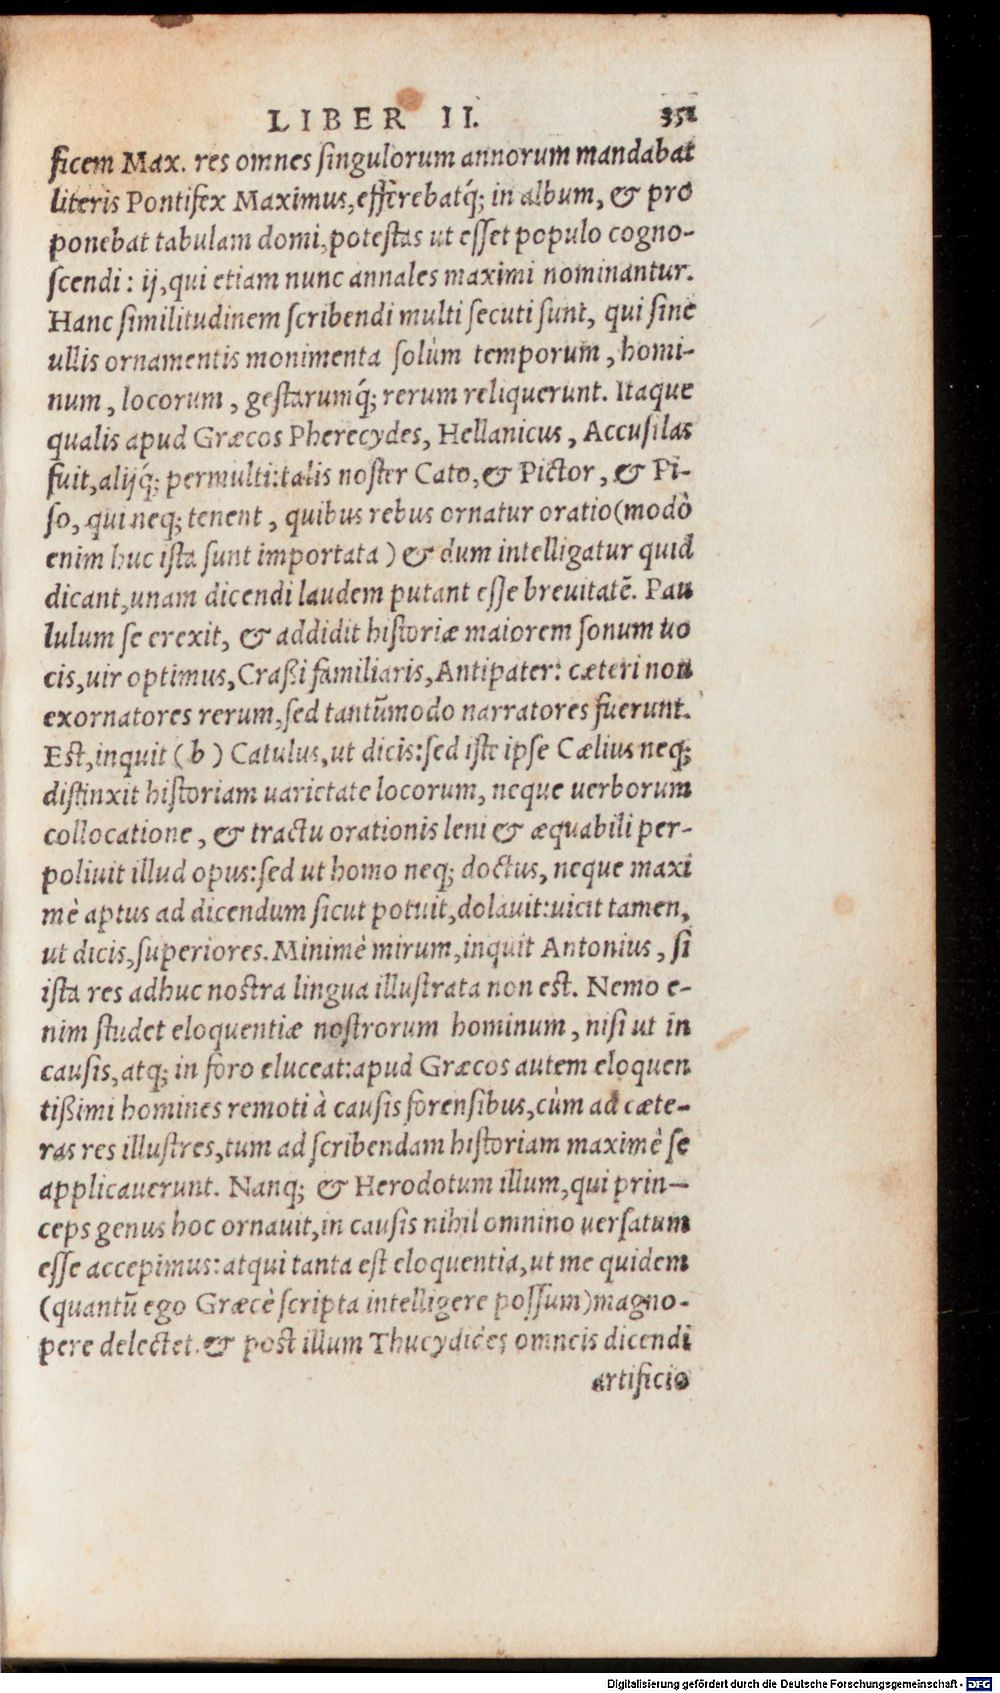 LIBER II. 351
ficem Max. res omnes singulorum annorum mandabat
literis Pontifex Maximus, efferebatq́; in album, & pro
ponebat tabulam domi, potestas ut esset populo cogno-
scendi: ij, qui etiam nunc annales maximi nominantur.
Hanc similitudinem scribendi multi secuti sunt, qui sine
ullis ornamentis monimenta solùm temporum, homi-
num, locorum, gestarumq́; rerum reliquerunt. Itaque
qualis apud Græcos Pherecydes, Hellanicus, Accusilas
fuit, alijq́; permulti: talis noster Cato, & Pictor, & Pi-
so, qui neq; tenent, quibus rebus ornatur oratio (modò
enim huc ista sunt importata) & dum intelligatur quid
dicant, unam dicendi laudem putant esse breuitatẽ. Pau
lulum se erexit, & addidit historiæ maiorem sonum uo
cis, uir optimus, Craßi familiaris, Antipater: cæteri non
exornatores rerum, sed tantũmodo narratores fuerunt.
Est, inquit (b) Catulus, ut dicis: sed iste ipse Cælius neq;
distinxit historiam uarietate locorum, neque uerborum
collocatione, & tractu orationis leni & æquabili per-
poliuit illud opus: sed ut homo neq; doctus, neque maxi
mè aptus ad dicendum sicut potuit, dolauit: uicit tamen,
ut dicis, superiores. Minimè mirum, inquit Antonius, si
ista res adhuc nostra lingua illustrata non est. Nemo e-
nim studet eloquentiæ nostrorum hominum, nisi ut in
causis, atq; in foro eluceat: apud Græcos autem eloquen
tißimi homines remoti à causis forensibus, cùm ad cæte-
ras res illustres, tum ad scribendam historiam maximè se
applicauerunt. Nanq; & Herodotum illum, qui prin-
ceps genus hoc ornauit, in causis nihil omnino uersatum
esse accepimus: atqui tanta est eloquentia, ut me quidem
(quantũ ego Græcè scripta intelligere possum) magno-
pere delectet. & post illum Thucydides omneis dicendi
artificio
Digitalisierung gefördert durch die Deutsche Forschungsgemeinschaft - DFG